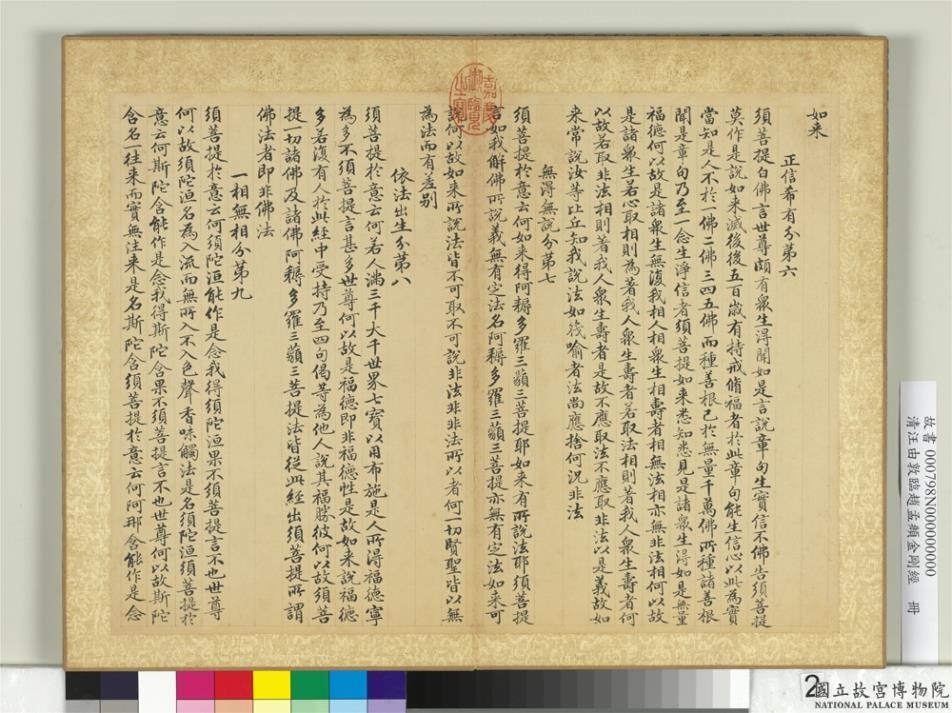 如来
正信希有分第六
須菩提白佛言世尊頗有衆生得聞如是言說章句生實信不佛告須菩提
莫作是說如来滅後後五百歲有持戒脩福者於此章句能生信心以此為實
當知是人不於一佛二佛三四五佛而種善根已於無量千萬佛所種諸善根
聞是章句乃至一念生淨信者須菩提如来悉知悉見是諸衆生得如是無量
福德何以故是諸衆生無復我相人相衆生相壽者相無法相亦無非法相何以故
是諸衆生若心取相則為著我人衆生壽者若取法相則著我人衆生壽者何
以故若取非法相則著我人衆生壽者是故不應取法不應取非法以是義故如
来常說汝等比丘知我說法如筏喻者法尚應捨何況非法
無得無說分第七
須菩提於意云何如来得阿耨多羅三藐三菩提耶如来有所說法耶須菩提
言如我解佛所說義無有定法名阿耨多羅三藐三菩提亦無有定法如来可
說何以故如来所說法皆不可取不可說非法非非法所以者何一切賢聖皆以無
為法而有差别
依法出生分第八
須菩提於意云何若人滿三千大千世界七寶以用布施是人所得福德寧
為多不須菩提言甚多世尊何以故是福德即非福德性是故如来說福德
多若復有人於此經中受持乃至四句偈等為他人說其福勝彼何以故須菩
提一切諸佛及諸佛阿耨多羅三藐三菩提法皆從此經出須菩提所謂
佛法者即非佛法
一相無相分第九
須菩提於意云何須陀洹能作是念我得須陀洹果不須菩提言不也世尊
何以故須陀洹名為入流而無所入不入色聲香味觸法是名須陀洹須菩提於
意云何斯陀含能作是念我得斯陀含果不須菩提言不也世尊何以故斯陀
含名一往来而實無往来是名斯陀含須菩提於意云何阿那含能作是念
嘉慶御覽之寶
故書 000798N000000000
清汪由敦臨趙孟頫金剛經 冊
2
國立故宮博物院
NATIONAL PALACE MUSEUM